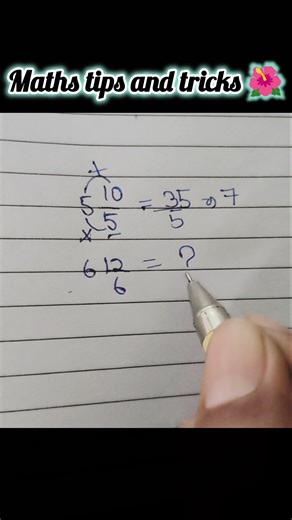 Maths tips and tricks 🌺
+
5 10/5 = 35/5 ⇒ 7
×
6 12/6 = ?